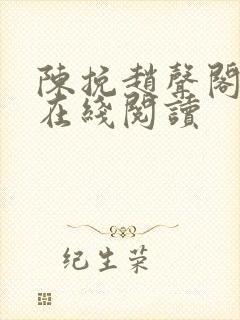 陳挽趙聲閣
在綫閱讀
纪生荣